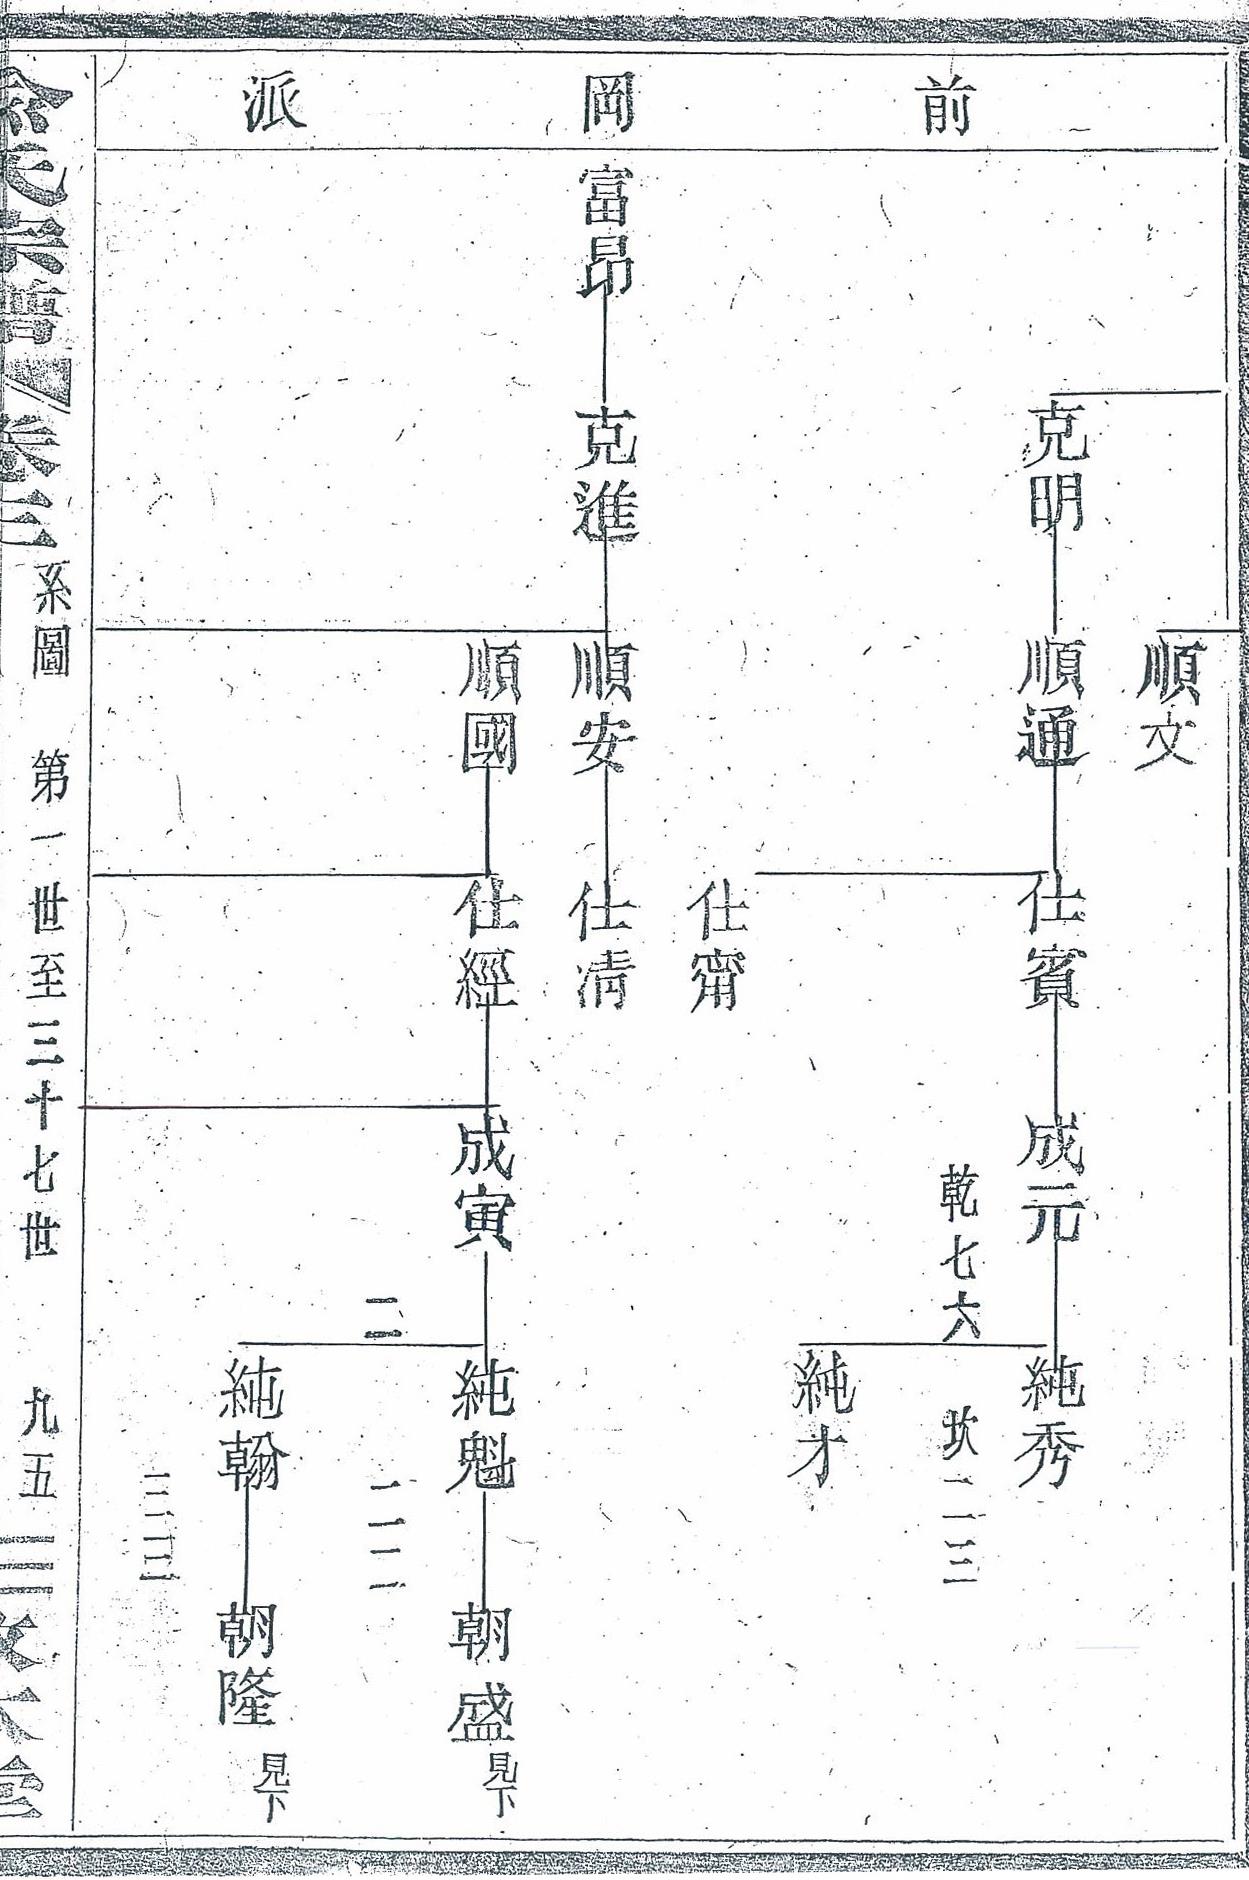 前岡派
順文
克明
順通
仕賓
成元
純秀
乾七六
坎一一三三
純才
仕甯
富昂
克進
順安
仕凊
順國
仕經
成寅
純魁
朝盛
見下
二
一一一一
純翰
朝隆
見下
系圖
第一世至三十七世
九五